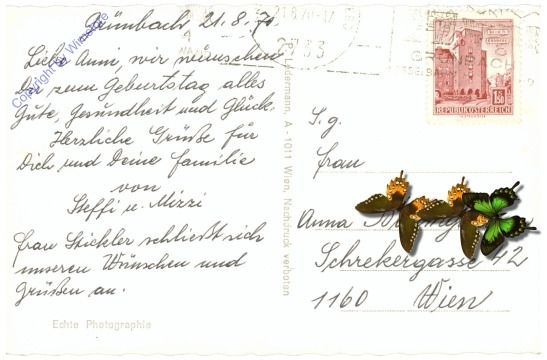 Grünbach, 21.8.70
Liebe Anni, wir wünschen
Dir zum Geburtstag alles
Gute, Gesundheit und Glück.
Herzliche Grüße für
Dich und Deine Familie
von
Steffi u. Mizzi
Frau Stickler schließt sich
unseren Wünschen und
Grüßen an.
Echte Photographie
Copyright by
P. Ledermann, A-1011 Wien, Nachdruck verboten
2733
1.50
REPUBLIK ÖSTERREICH
S.g.
Frau
Anna
Schrekergasse 42
1160 Wien